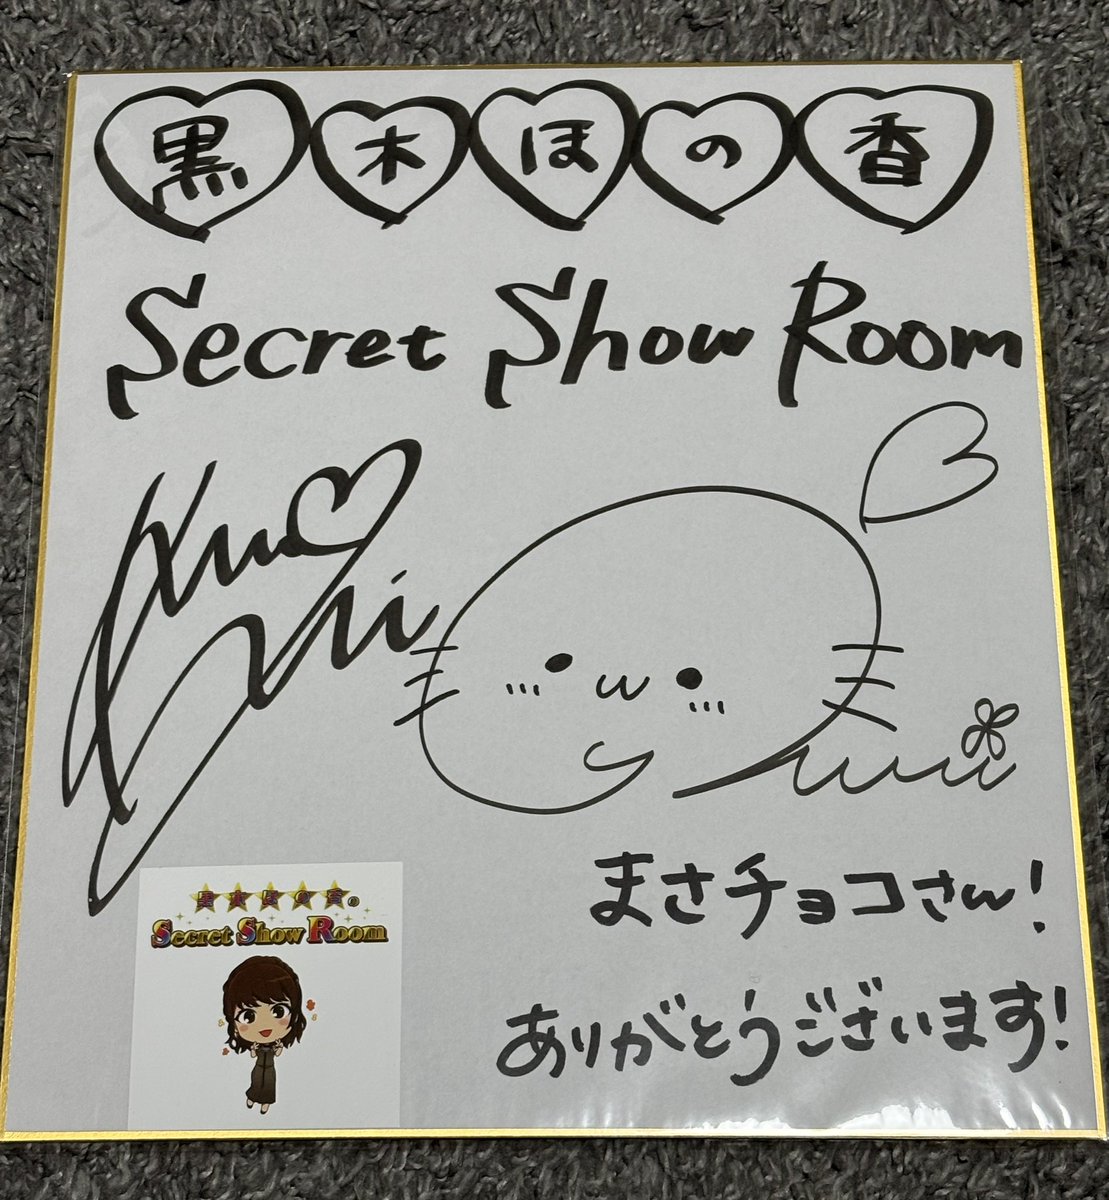 黒木ほの香
Secret Show Room
まさチョコさん!
ありがとうございます!
黒木ほの香の
Secret Show Room